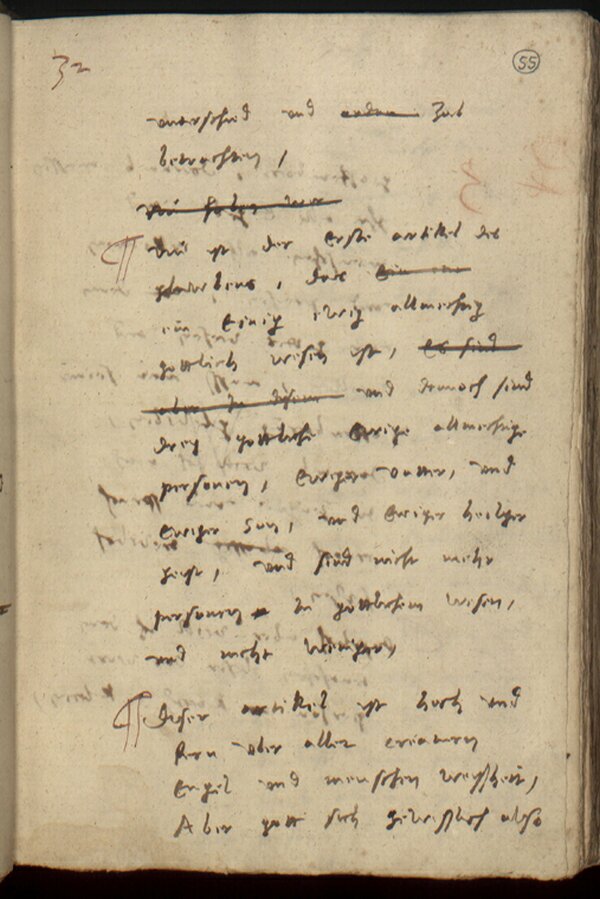 32
55
unterschid und zal
betrachten,
Diß ist der erste artikel des
glaubens, das
ein einig ewig allmechtig
gottlich wesen ist, es sind
und dennoch sind
drey gottliche ewige allmechtige
personen, ewiger vatter, und
ewiger Son, und ewiger heilger
geist, und sind nicht mehr
personen in gottlichem wesen,
und nicht weniger,
Diser artikel ist hoch und
fern uber aller creaturn
Engel und menschen weißheit,
Aber gott sich gewißlich also